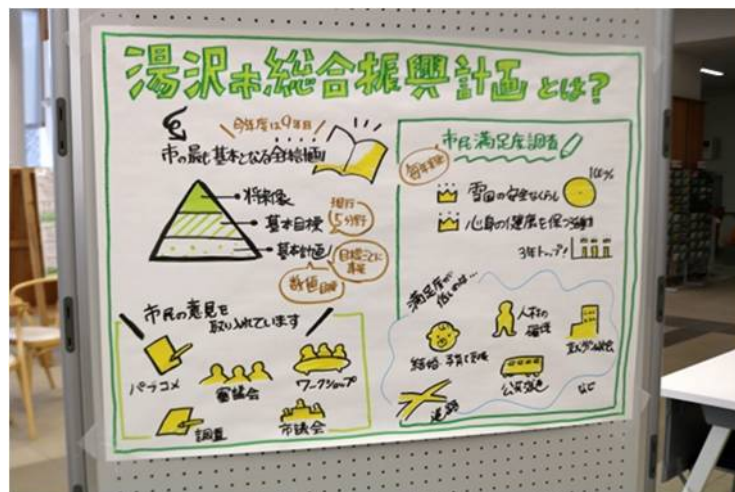 湯沢市総合振興計画とは?
今年度は9年目
市の最も基本となる全体計画
将来像
基本目標
現行
5分野
基本計画
目標ごとに
数値目標
市民の意見を
取り入れています
パブコメ
審議会
ワークショップ
調査
市議会
市民満足度調査
毎年実施
雪国の安全なくらし
100%
心身の健康を保つ
3年トップ!
満足度が
低いのは…
結婚・子育て支援
人材の
確保
道路
公共交通
など